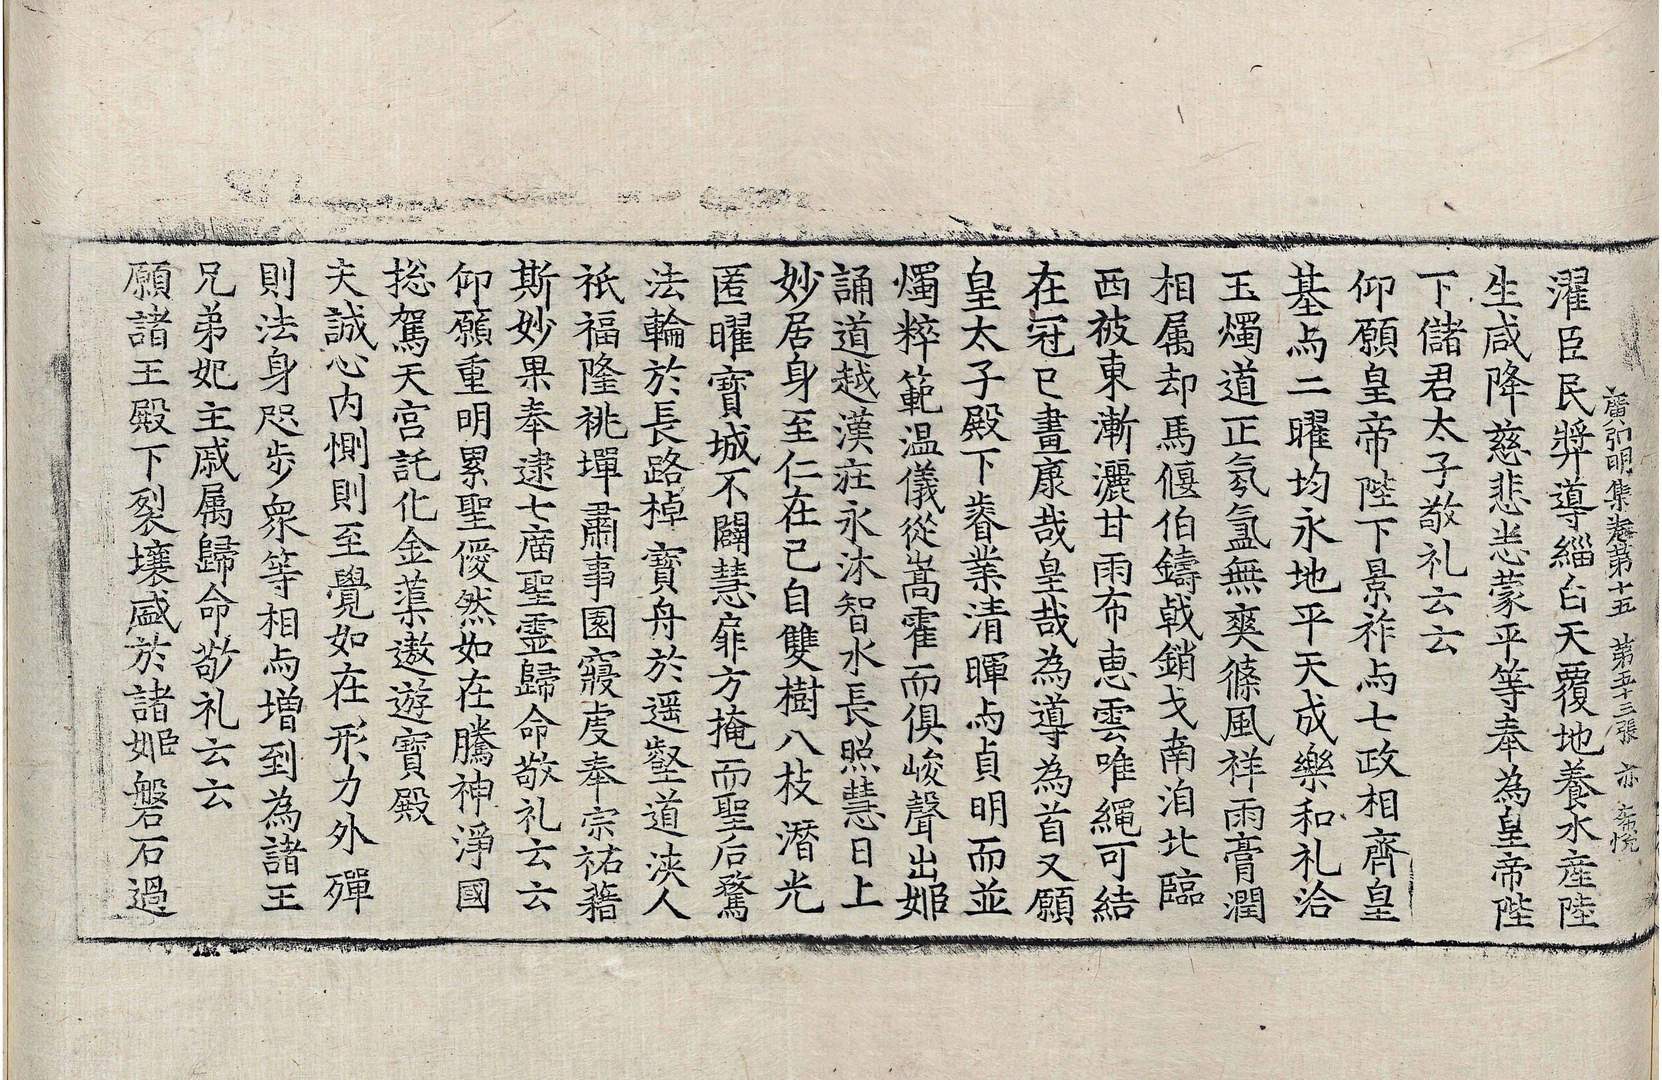 廣弘明集卷第十五 第五十三張 亦
濯臣民弉導緇白天覆地養水産陸
生咸降慈悲悉蒙平等奉為皇帝陛
下儲君太子敬礼云云
仰願皇帝陛下景祚与七政相齊皇
基与二曜均永地平天成樂和礼洽
玉燭道正氛氳無爽篠風祥雨膏潤
相属却馬偃伯鑄戟銷戈南洎北臨
西被東漸灑甘雨布恵雲唯繩可結
在冠已畫康哉皇哉為導為首又願
皇太子殿下睿業清暉与貞明而並
燭粹範温儀從嵩霍而俱峻聲出姬
誦道越漢莊永沐智水長照慧日上
妙居身至仁在己自雙樹八枝潛光
匿曜寶城不闢慧扉方掩而聖后騖
法輪於長路棹寶舟於遥壑道浹人
祇福隆祧墠肅事園寢虔奉宗祐藉
斯妙果奉逮七庿聖霊歸命敬礼云云
仰願重明累聖優然如在騰神淨國
捴駕天宮託化金蕖遨遊寶殿
夫誠心内惻則至覺如在形力外殫
則法身咫步衆等相与増到為諸王
兄弟妃主戚属歸命敬礼云云
願諸王殿下裂壤盛於諸姬磐石過